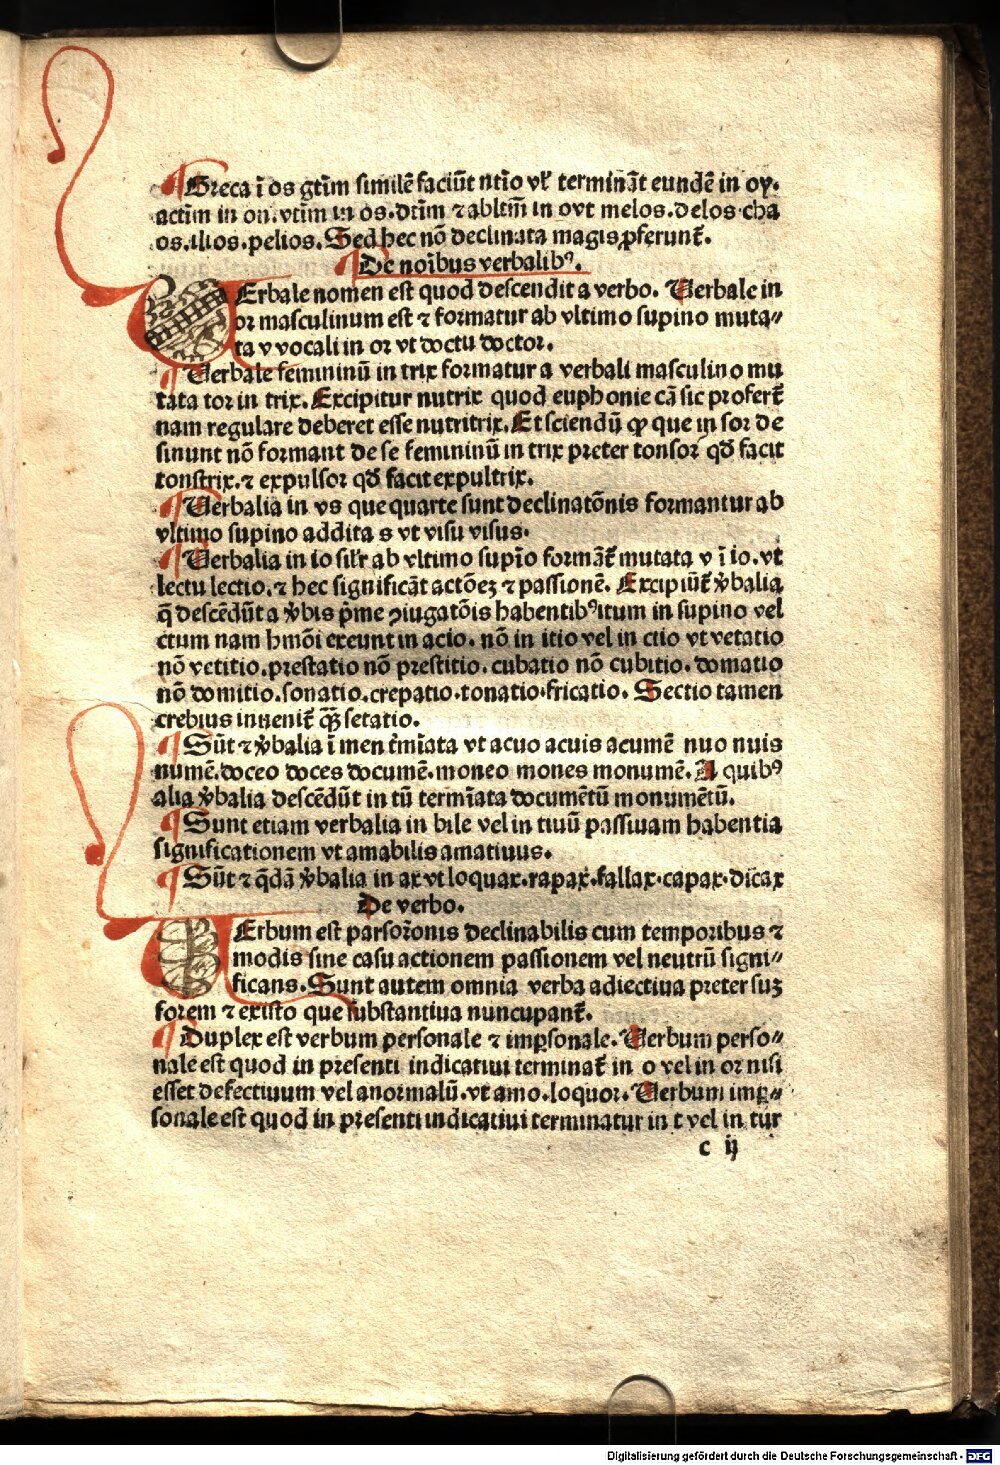 ¶Greca ī os gtīm similē faciūt ntīo vł termināt eundē in oy.
actīm in on. vtīm in os. dtīm ⁊ abltīm in o vt melos. delos. cha
os. ilios. pelios. Sed hec nō declinata magis ꝓferunt̄.
¶De noībus verbalibꝰ.
VErbale nomen est quod descendit a verbo. Verbale in
or masculinum est ⁊ formatur ab vltimo supino muta⸗
ta v vocali in or vt doctu doctor.
¶Verbale femininū in trix formatur a verbali masculino mu
tata tor in trix. Excipitur nutrix quod euphonie cā sic profert̄
nam regulare deberet esse nutritrix. Et sciendū ꝙ que in sor de
sinunt nō formant de se femininū in trix preter tonsor qđ facit
tonstrix. ⁊ expulsor qđ facit expultrix.
¶Verbalia in vs que quarte sunt declinatōnis formantur ab
vltimo supino addita s vt visu visus.
¶Verbalia in io silʼr ab vltimo supīo formāt̄ mutata v ī io. vt
lectu lectio. ⁊ hec significāt actōeꝫ ⁊ passionē. Excipiūt̄ v̓balia
q̄ descēdūt a v̓bis p̄me ꝯiugatōis habentibꝰ itum in supino vel
ctum nam hmōi exeunt in acio. nō in itio vel in ctio vt vetatio
nō vetitio. prestatio nō prestitio. cubatio nō cubitio. domatio
nō domitio. sonatio. crepatio. tonatio. fricatio. Sectio tamen
crebius inuenit̄ ꝙ̄ꝫ setatio.
¶Sūt ⁊ v̓balia ī men t̓mīata vt acuo acuis acumē nuo nuis
numē. doceo doces documē. moneo mones monumē. A quibꝰ
alia v̓balia descēdūt in tū termīata documētū monumētū.
¶Sunt etiam verbalia in bile vel in tiuū passiuam habentia
significationem vt amabilis amatiuus.
¶Sūt ⁊ q̄dā v̓balia in ax vt loquax. rapax. fallax. capax. dicax
De verbo.
VErbum est pars or̄onis declinabilis cum temporibus ⁊
modis sine casu actionem passionem vel neutrū signi⸗
ficans. Sunt autem omnia verba adiectiua preter suꝫ
forem ⁊ existo que substantiua nuncupant̄.
¶Duplex est verbum personale ⁊ imꝑsonale. Verbum perso⸗
nale est quod in presenti indicatiui terminat̄ in o vel in or nisi
esset defectiuum vel anormalū. vt amo. loquor. Verbum imꝑ⸗
sonale est quod in presenti indicatiui terminatur in t vel in tur
c ij
Digitalisierung gefördert durch die Deutsche Forschungsgemeinschaft - DFG